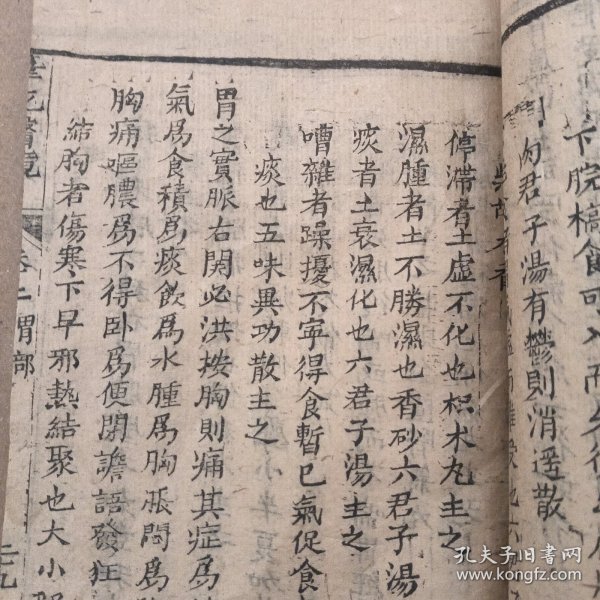 下脘槁食可入而
肉君子湯有鬱則消遥散
停滯者土虚不化也枳术丸主之
濕腫者土不勝濕也香砂六君子湯
痰者土衰濕化也六君子湯主之
嘈雜者躁擾不寧得食暫已氣促食
痰也五味異功散主之
胃之實脈右関必洪按胸則痛其症爲
氣爲食積爲痰飲爲水腫爲胸脹悶爲
胸痛嘔膿爲不得卧爲便閉譫語發狂
結胸者傷寒下早邪熱結聚也大小
筆花醫鏡
卷二胃部
孔夫子旧书网
www.kongfz.com